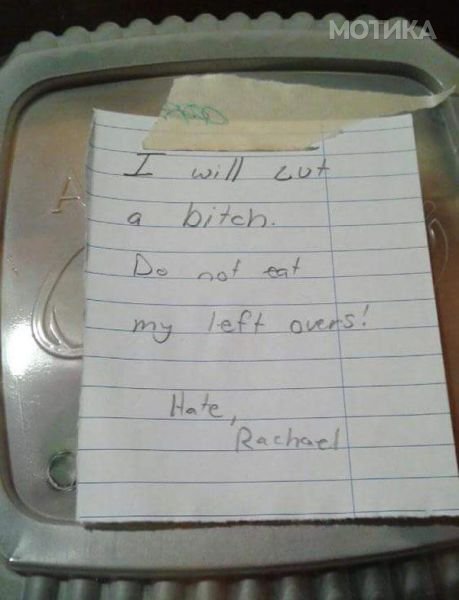 МОТИКА
I will cut
a bitch.
Do not eat
my left overs!
Hate,
Rachael